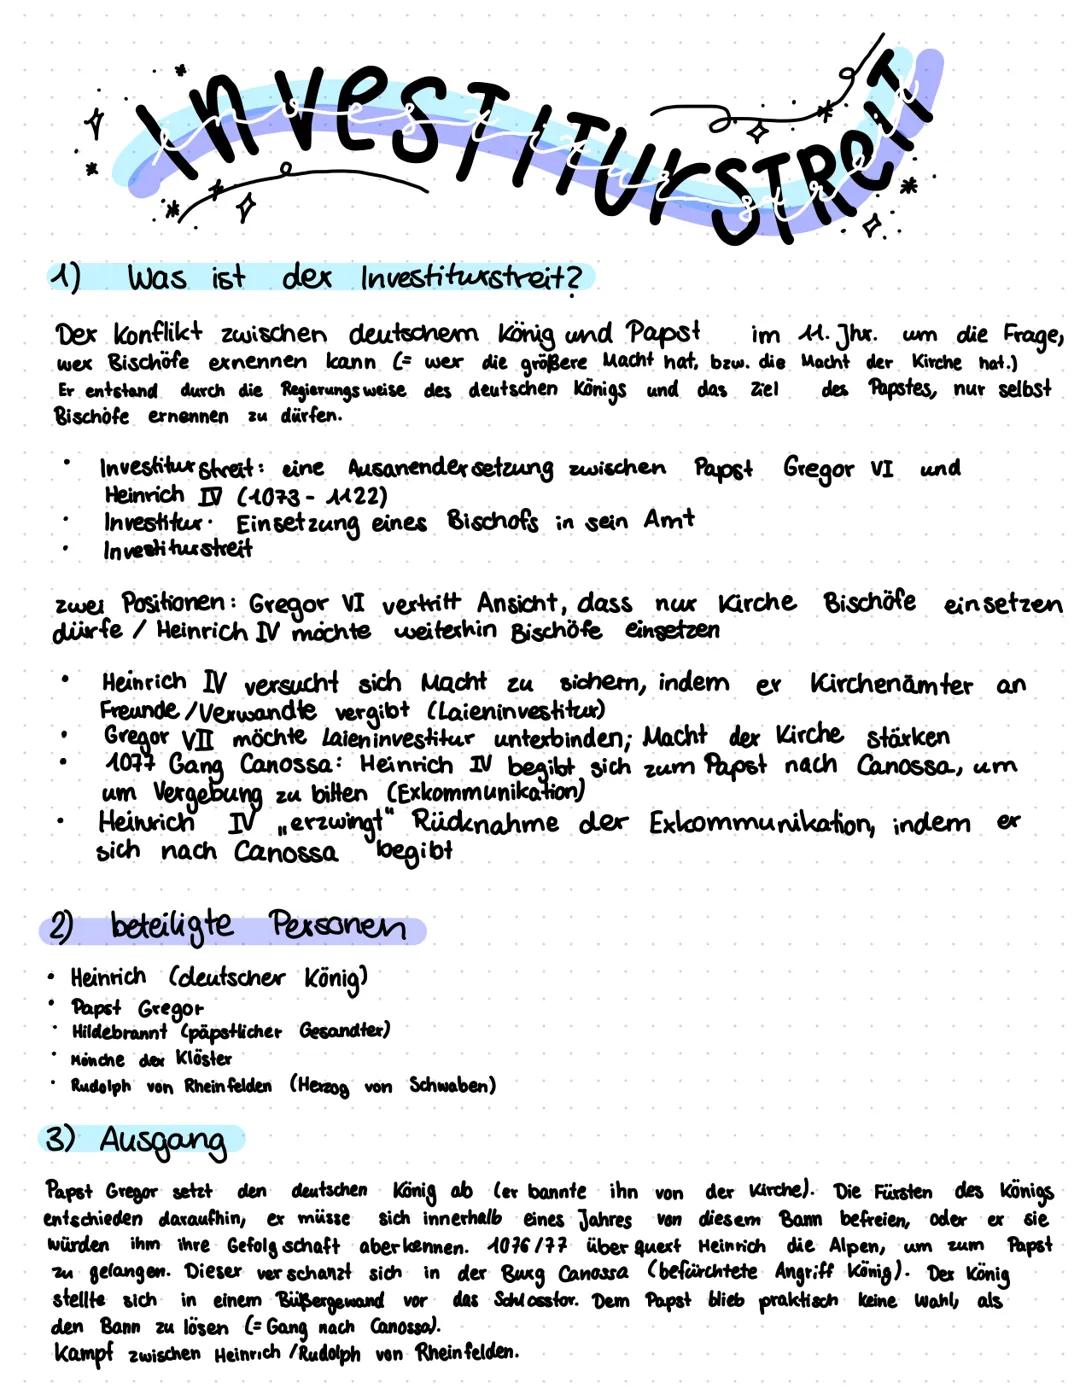 InvestiturSTReiT
Investiturstreit
1) Was ist der Investiturstreit?
Der Konflikt zwischen deutschem König und Papst im 11. Jhr. um die Frage,
wer Bischöfe ernennen kann (= wer die größere Macht hat, bzw. die Macht der Kirche hat.)
Er entstand durch die Regierungsweise des deutschen Königs und das Ziel des Papstes, nur selbst
Bischöfe ernennen zu dürfen.
• Investiturstreit: eine Ausanendersetzung zwischen Papst Gregor VI und
Heinrich IV (1073 - 1122)
• Investitur: Einsetzung eines Bischofs in sein Amt
• Investiturstreit
zwei Positionen: Gregor VI vertritt Ansicht, dass nur Kirche Bischöfe einsetzen
dürfe / Heinrich IV möchte weiterhin Bischöfe einsetzen
• Heinrich IV versucht sich Macht zu sichern, indem er Kirchenämter an
Freunde/Verwandte vergibt (Laieninvestitur)
• Gregor VII möchte Laieninvestitur unterbinden; Macht der Kirche stärken
• 1077 Gang Canossa: Heinrich IV begibt sich zum Papst nach Canossa, um
um Vergebung zu bitten (Exkommunikation)
• Heinrich IV „erzwingt“ Rücknahme der Exkommunikation, indem er
sich nach Canossa begibt
2) beteiligte Personen
• Heinrich (deutscher König)
• Papst Gregor
• Hildebrannt (päpstlicher Gesandter)
• Mönche der Klöster
• Rudolph von Rheinfelden (Herzog von Schwaben)
3) Ausgang
Papst Gregor setzt den deutschen König ab (er bannte ihn von der Kirche). Die Fürsten des Königs
entschieden daraufhin, er müsse sich innerhalb eines Jahres von diesem Bann befreien, oder er sie
würden ihm ihre Gefolgschaft aberkennen. 1076/77 überquert Heinrich die Alpen, um zum Papst
zu gelangen. Dieser verschanzt sich in der Burg Canossa (befürchtete Angriff König). Der König
stellte sich in einem Büßergewand vor das Schlosstor. Dem Papst blieb praktisch keine Wahl, als
den Bann zu lösen (= Gang nach Canossa).
Kampf zwischen Heinrich/Rudolph von Rheinfelden.